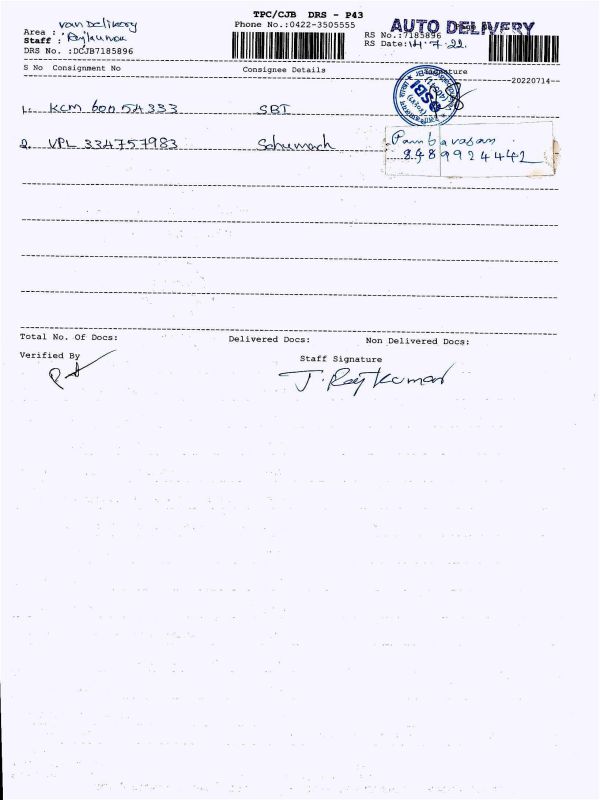 TPC/CJB DRS - P43
AUTO DELIVERY
Area : van Delivery
Phone No.:0422-3505555
Staff : Rajkumar
RS No.:7185896
DRS No. :DCJB7185896
RS Date: 14.7.22.
S No Consignment No Consignee Details Signature
--20220714--
1. KCM 600 54333 SBI
SBI
2. VPL 334757983 Schumach
8489924442
Total No. Of Docs: Delivered Docs: Non Delivered Docs:
Verified By Staff Signature
J. Rajkumar